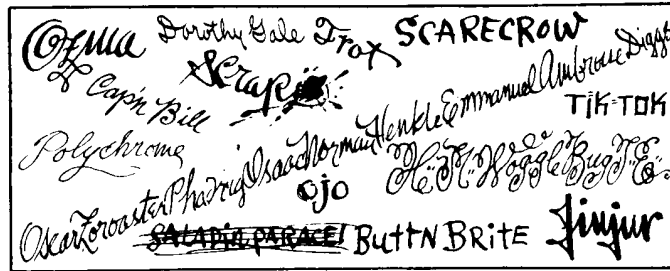 Ozma
Dorothy Gale
Trot
SCARECROW
Cap'n Bill
Scraps
TiK-TOK
Polychrome
Oscar Zoroaster Phadrig Isaac Norman Henkle Emmanuel Ambroise Diggs
H.M. Woggle Bug T.E.
ojo
BUTTN BRITE
Jinjur